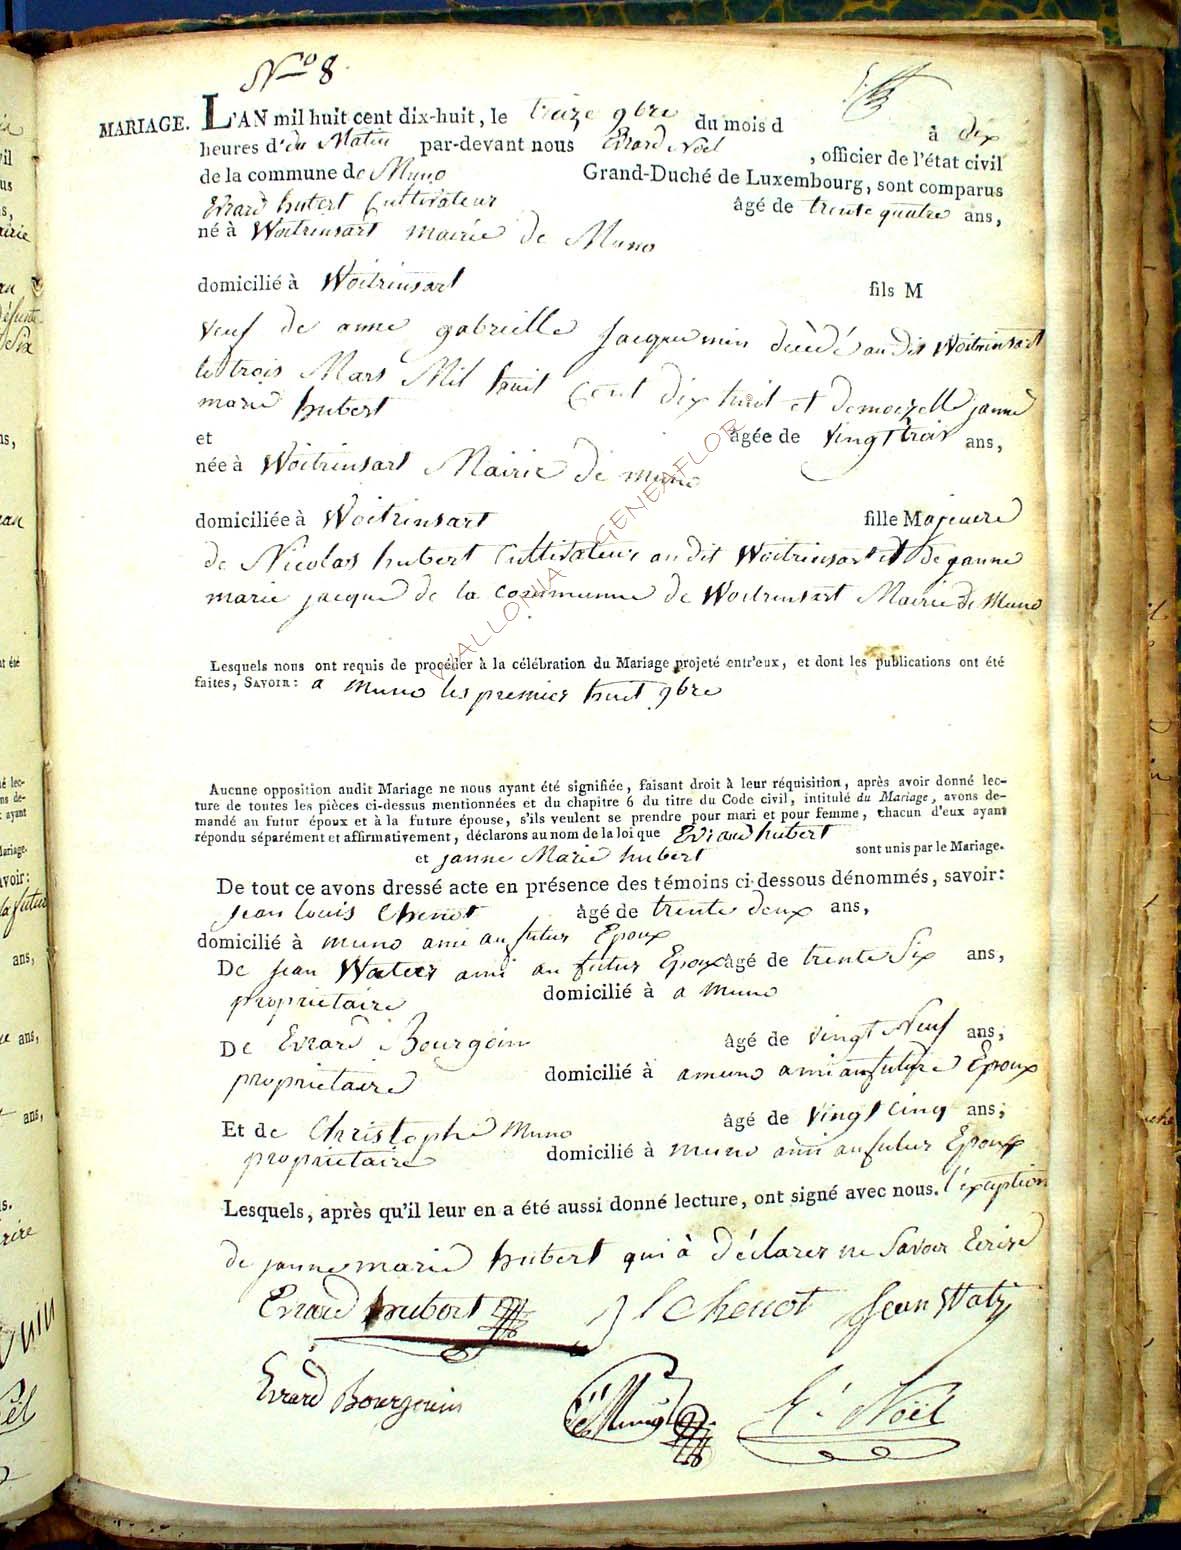 N.o 8.
MARIAGE. L'AN mil huit cent dix-huit, le treize 9bre du mois d à dix
heures d'du Matin par-devant nous Evrard Noël , officier de l'état civil
de la commune de Muno Grand-Duché de Luxembourg, sont comparus
Evrard hubert Cultivateur âgé de trente quatre ans,
né à Woitrinsart mairie de Muno
domicilié à Woitrinsart fils M
veuf de anne gabrielle Jacquemin décédé au dit Woitrinsart
le trois Mars Mil huit Cent dix huit et demoizelle janne
marie hubert
et âgée de vingt trois ans,
née à Woitrinsart Mairie de muno
domiciliée à Woitrinsart fille Majeure
de Nicolas hubert Cultivateur au dit Woitrinsart et de janne
marie jacque de la commune de Woitrinsart Mairie de Muno
WALLONIA GENEAFLOR
Lesquels nous ont requis de procéder à la célébration du Mariage projeté entr'eux, et dont les publications ont été
faites, SAVOIR: a muno les premier huit 9bre
Aucune opposition audit Mariage ne nous ayant été signifiée, faisant droit à leur réquisition, après avoir donné lec-
ture de toutes les pièces ci-dessus mentionnées et du chapitre 6 du titre du Code civil, intitulé du Mariage, avons de-
mandé au futur époux et à la future épouse, s'ils veulent se prendre pour mari et pour femme, chacun d'eux ayant
répondu séparément et affirmativement, déclarons au nom de la loi que Evrard hubert
et janne Marie hubert sont unis par le Mariage.
De tout ce avons dressé acte en présence des témoins ci-dessous dénommés, savoir:
Jean Louis Chenot âgé de trente deux ans,
domicilié à muno ami au futur Epoux
De Jean Water ami au futur Epoux âgé de trente Six ans,
proprietaire domicilié à a muno
De Evrard Bourgoin âgé de vingt Neuf ans,
proprietaire domicilié à a muno ami au future Epoux
Et de Christophe Muno âgé de vingt Cinq ans,
proprietaire domicilié à muno ami au futur Epoux
Lesquels, après qu'il leur en a été aussi donné lecture, ont signé avec nous. l'exception
de janne marie hubert qui à déclarer ne Savoir Ecrire
Evrard hubert J l Chenot Jean Watz
Evrard Bourgouin Muno E. Noël